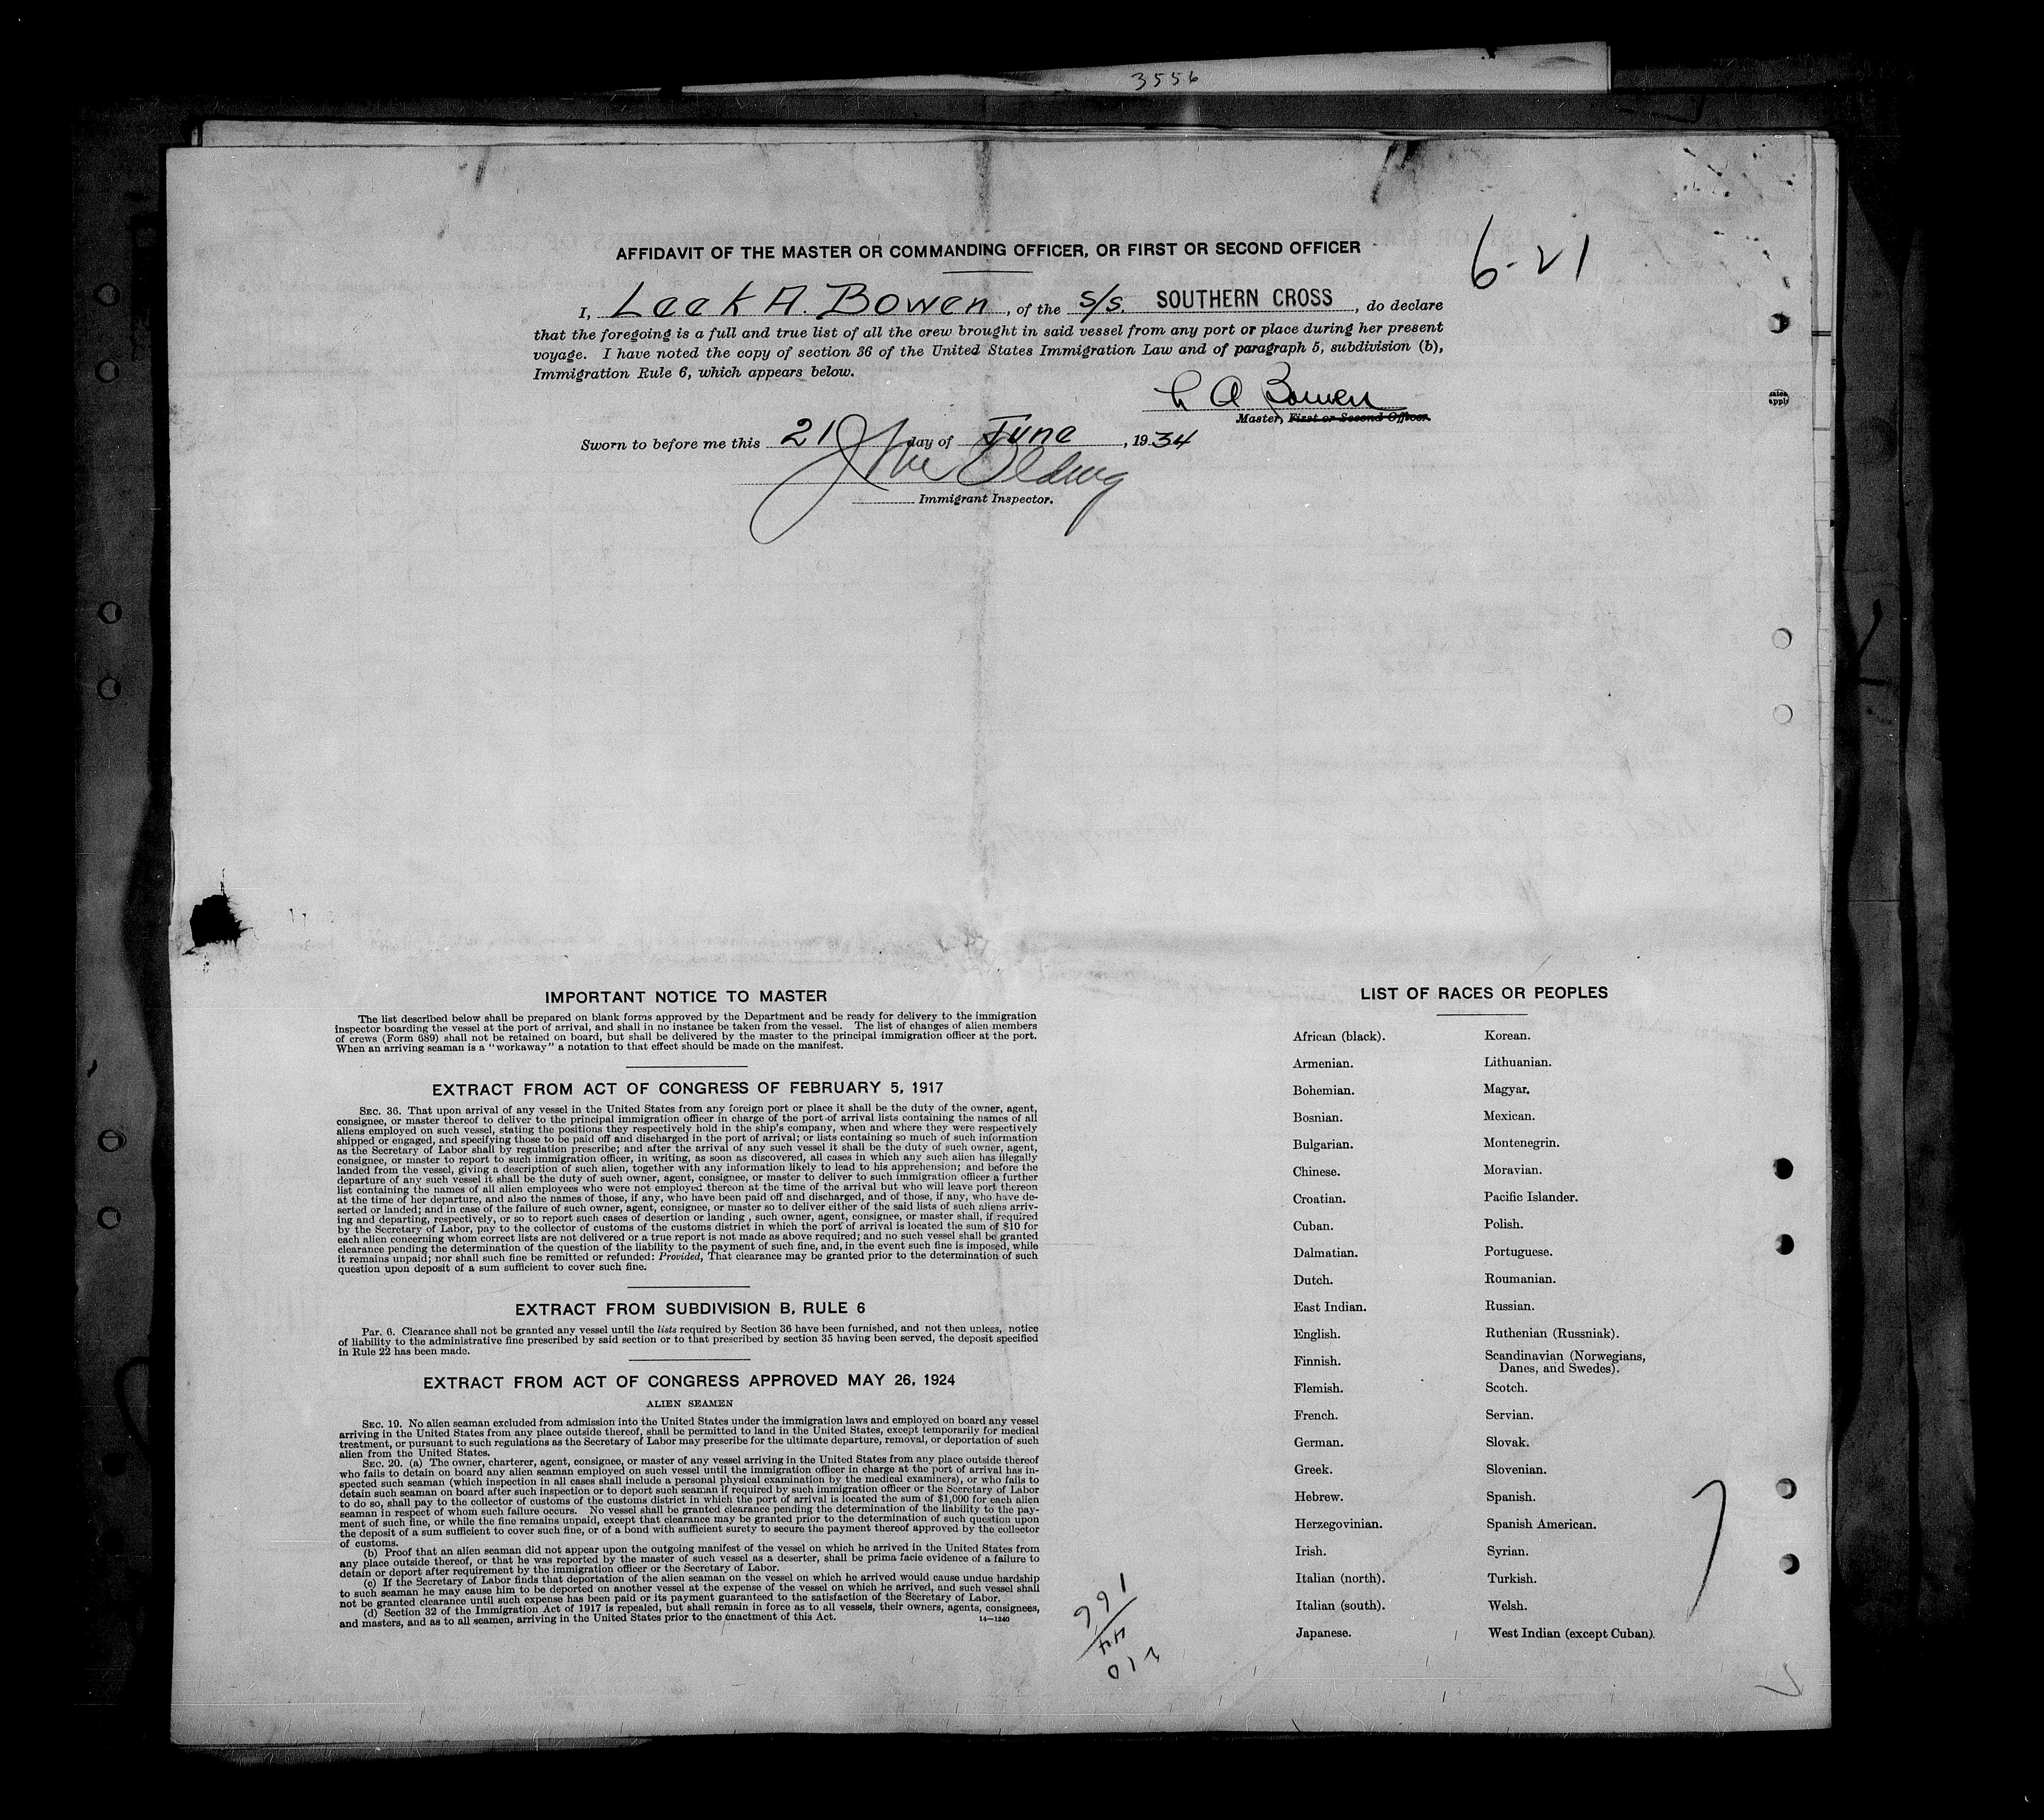 3556
6-21
AFFIDAVIT OF THE MASTER OR COMMANDING OFFICER, OR FIRST OR SECOND OFFICER
I, Leek A. Bowen, of the S/S. SOUTHERN CROSS, do declare
that the foregoing is a full and true list of all the crew brought in said vessel from any port or place during her present
voyage. I have noted the copy of section 36 of the United States Immigration Law and of paragraph 5, subdivision (b),
Immigration Rule 6, which appears below.
L A Bowen
Master, First or Second Officer.
Sworn to before me this 21 day of June, 1934
Immigrant Inspector.
IMPORTANT NOTICE TO MASTER
The list described below shall be prepared on blank forms approved by the Department and be ready for delivery to the immigration
inspector boarding the vessel at the port of arrival, and shall in no instance be taken from the vessel. The list of changes of alien members
of crews (Form 689) shall not be retained on board, but shall be delivered by the master to the principal immigration officer at the port.
When an arriving seaman is a "workaway" a notation to that effect should be made on the manifest.
EXTRACT FROM ACT OF CONGRESS OF FEBRUARY 5, 1917
SEC. 36. That upon arrival of any vessel in the United States from any foreign port or place it shall be the duty of the owner, agent,
consignee, or master thereof to deliver to the principal immigration officer in charge of the port of arrival lists containing the names of all
aliens employed on such vessel, stating the positions they respectively hold in the ship's company, when and where they were respectively
shipped or engaged, and specifying those to be paid off and discharged in the port of arrival; or lists containing so much of such information
as the Secretary of Labor shall by regulation prescribe; and after the arrival of any such vessel it shall be the duty of such owner, agent,
consignee, or master to report to such immigration officer, in writing, as soon as discovered, all cases in which any such alien has illegally
landed from the vessel, giving a description of such alien, together with any information likely to lead to his apprehension; and before the
departure of any such vessel it shall be the duty of such owner, agent, consignee, or master to deliver to such immigration officer a further
list containing the names of all alien employees who were not employed thereon at the time of the arrival but who will leave port thereon
at the time of her departure, and also the names of those, if any, who have been paid off and discharged, and of those, if any, who have de-
serted or landed; and in case of the failure of such owner, agent, consignee, or master so to deliver either of the said lists of such aliens arriv-
ing and departing, respectively, or so to report such cases of desertion or landing , such owner, agent, consignee, or master shall, if required
by the Secretary of Labor, pay to the collector of customs of the customs district in which the port of arrival is located the sum of $10 for
each alien concerning whom correct lists are not delivered or a true report is not made as above required; and no such vessel shall be granted
clearance pending the determination of the question of the liability to the payment of such fine, and, in the event such fine is imposed, while
it remains unpaid; nor shall such fine be remitted or refunded: Provided, That clearance may be granted prior to the determination of such
question upon deposit of a sum sufficient to cover such fine.
EXTRACT FROM SUBDIVISION B, RULE 6
Par. 6. Clearance shall not be granted any vessel until the lists required by Section 36 have been furnished, and not then unless, notice
of liability to the administrative fine prescribed by said section or to that prescribed by section 35 having been served, the deposit specified
in Rule 22 has been made.
EXTRACT FROM ACT OF CONGRESS APPROVED MAY 26, 1924
ALIEN SEAMEN
SEC. 19. No alien seaman excluded from admission into the United States under the immigration laws and employed on board any vessel
arriving in the United States from any place outside thereof, shall be permitted to land in the United States, except temporarily for medical
treatment, or pursuant to such regulations as the Secretary of Labor may prescribe for the ultimate departure, removal, or deportation of such
alien from the United States.
SEC. 20. (a) The owner, charterer, agent, consignee, or master of any vessel arriving in the United States from any place outside thereof
who fails to detain on board any alien seaman employed on such vessel until the immigration officer in charge at the port of arrival has in-
spected such seaman (which inspection in all cases shall include a personal physical examination by the medical examiners), or who fails to
detain such seaman on board after such inspection or to deport such seaman if required by such immigration officer or the Secretary of Labor
to do so, shall pay to the collector of customs of the customs district in which the port of arrival is located the sum of $1,000 for each alien
seaman in respect of whom such failure occurs. No vessel shall be granted clearance pending the determination of the liability to the pay-
ment of such fine, or while the fine remains unpaid, except that clearance may be granted prior to the determination of such question upon
the deposit of a sum sufficient to cover such fine, or of a bond with sufficient surety to secure the payment thereof approved by the collector
of customs.
(b) Proof that an alien seaman did not appear upon the outgoing manifest of the vessel on which he arrived in the United States from
any place outside thereof, or that he was reported by the master of such vessel as a deserter, shall be prima facie evidence of a failure to
detain or deport after requirement by the immigration officer or the Secretary of Labor.
(c) If the Secretary of Labor finds that deportation of the alien seaman on the vessel on which he arrived would cause undue hardship
to such seaman he may cause him to be deported on another vessel at the expense of the vessel on which he arrived, and such vessel shall
not be granted clearance until such expense has been paid or its payment guaranteed to the satisfaction of the Secretary of Labor.
(d) Section 32 of the Immigration Act of 1917 is repealed, but shall remain in force as to all vessels, their owners, agents, consignees,
and masters, and as to all seamen, arriving in the United States prior to the enactment of this Act.
14—1240
LIST OF RACES OR PEOPLES
African (black).
Armenian.
Bohemian.
Bosnian.
Bulgarian.
Chinese.
Croatian.
Cuban.
Dalmatian.
Dutch.
East Indian.
English.
Finnish.
Flemish.
French.
German.
Greek.
Hebrew.
Herzegovinian.
Irish.
Italian (north).
Italian (south).
Japanese.
Korean.
Lithuanian.
Magyar.
Mexican.
Montenegrin.
Moravian.
Pacific Islander.
Polish.
Portuguese.
Roumanian.
Russian.
Ruthenian (Russniak).
Scandinavian (Norwegians,
Danes, and Swedes).
Scotch.
Servian.
Slovak.
Slovenian.
Spanish.
Spanish American.
Syrian.
Turkish.
Welsh.
West Indian (except Cuban).